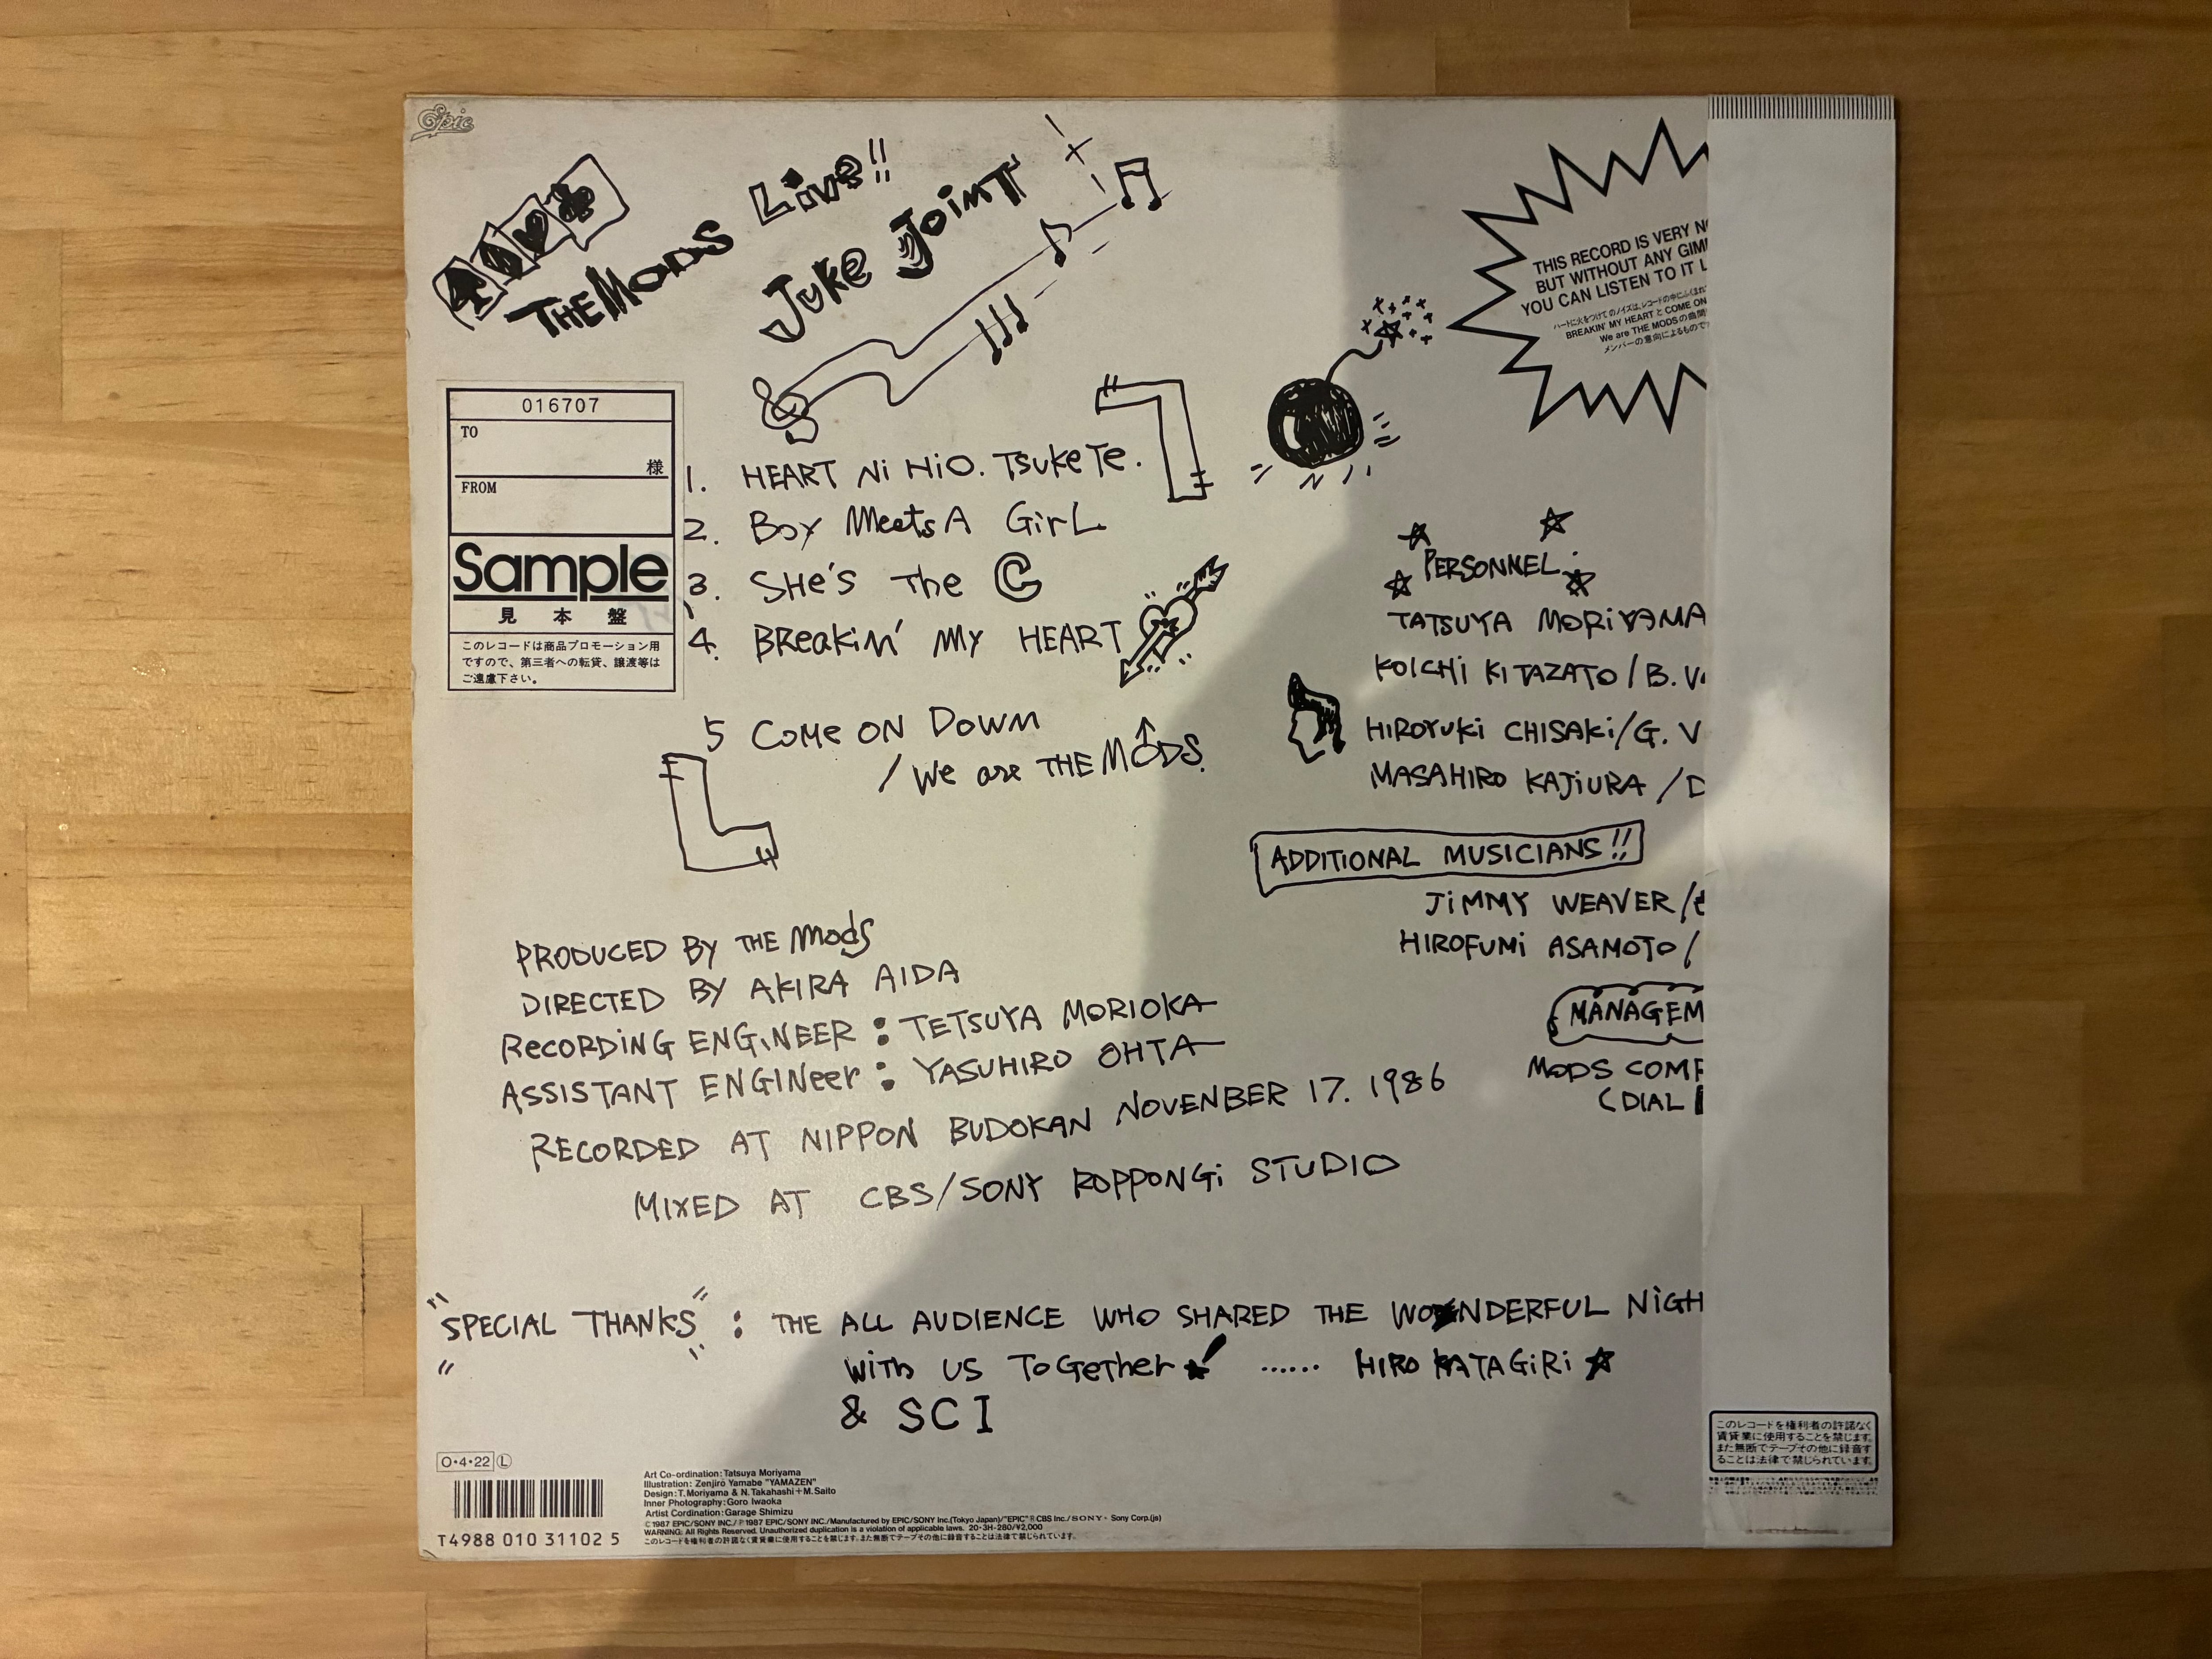 Epic
THE MODS Live!!
Juke Joint
THIS RECORD IS VERY
BUT WITHOUT ANY
YOU CAN LISTEN TO IT
ハートに火をつけてのノイズは、レコードの中に
BREAKIN' MY HEART と COME ON
We are THE MODSの曲間
メンバーの意向によるもので
016707
TO
様
FROM
Sample
見本盤
このレコードは商品プロモーション用
ですので、第三者への転貸、譲渡等は
ご遠慮下さい。
1. HEART Ni HiO. TsukeTe.
2. Boy Meets A GirL
3. SHe's The C
4. BReakin' My HEART
5 Come ON Down
/ We are THE MODS.
PERSONNEL
TATSUYA MORiYAMA
KOICHi KiTAZATO / B.
HIROYUKi CHISAKi / G. V
MASAHIRO KAJiURA /
ADDITIONAL MUSICIANS!!
JiMMY WEAVER /
HIROFUMi ASAMOTO /
MANAGEM
MODS
(DIAL
PRODUCED BY THE Mods
DIRECTED BY AKIRA AIDA
RECORDiNG ENGiNEER : TETSUYA MORIOKA
ASSISTANT ENGINeer : YASUHIRO OHTA
RECORDED AT NIPPON BUDOKAN NOVENBER 17. 1986
MIXED AT CBS/SONY ROPPONGi STUDIO
"SPECIAL THANKS" : THE ALL AUDIENCE WHO SHARED THE WONDERFUL NiGH
With us ToGether! ...... HIRO KATAGiRi
& SCI
O・4・22 L
T4988 010 31102 5
Art Co-ordination:Tatsuya Moriyama
Illustration: Zenjiro Yamabe "YAMAZEN"
Design:T.Moriyama & N.Takahashi+M.Saito
Inner Photography:Goro Iwaoka
Artist Cordination:Garage Shimizu
©1987 EPIC/SONY INC./℗1987 EPIC/SONY INC./Manufactured by EPIC/SONY Inc.(Tokyo Japan)/"EPIC"®CBS Inc./SONY® Sony Corp.(js)
WARNING: All Rights Reserved. Unauthorized duplication is a violation of applicable laws. 20・3H-280/¥2,000
このレコードを権利者の許諾なく賃貸業に使用することを禁じます。また無断でテープその他に録音することは法律で禁じられています。
このレコードを権利者の許諾なく
賃貸業に使用することを禁じます。
また無断でテープその他に録音す
ることは法律で禁じられています。